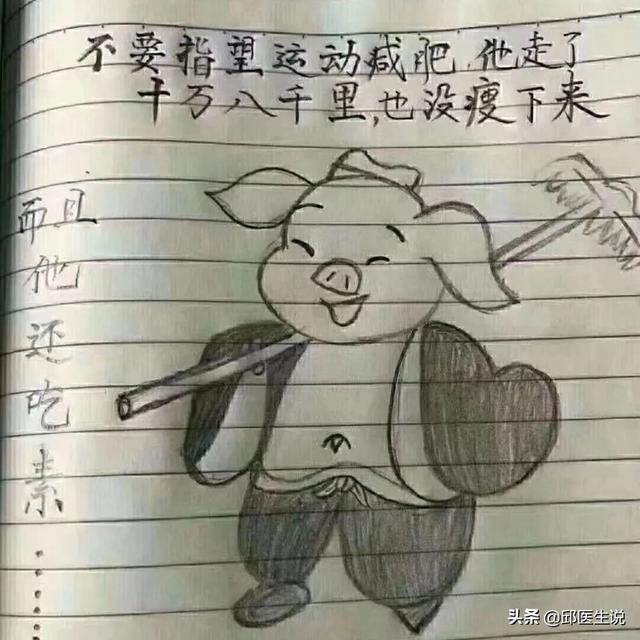 不要指望运动减肥,他走了
十万八千里,也没瘦下来
而且他还吃素......
头条 @邱医生说